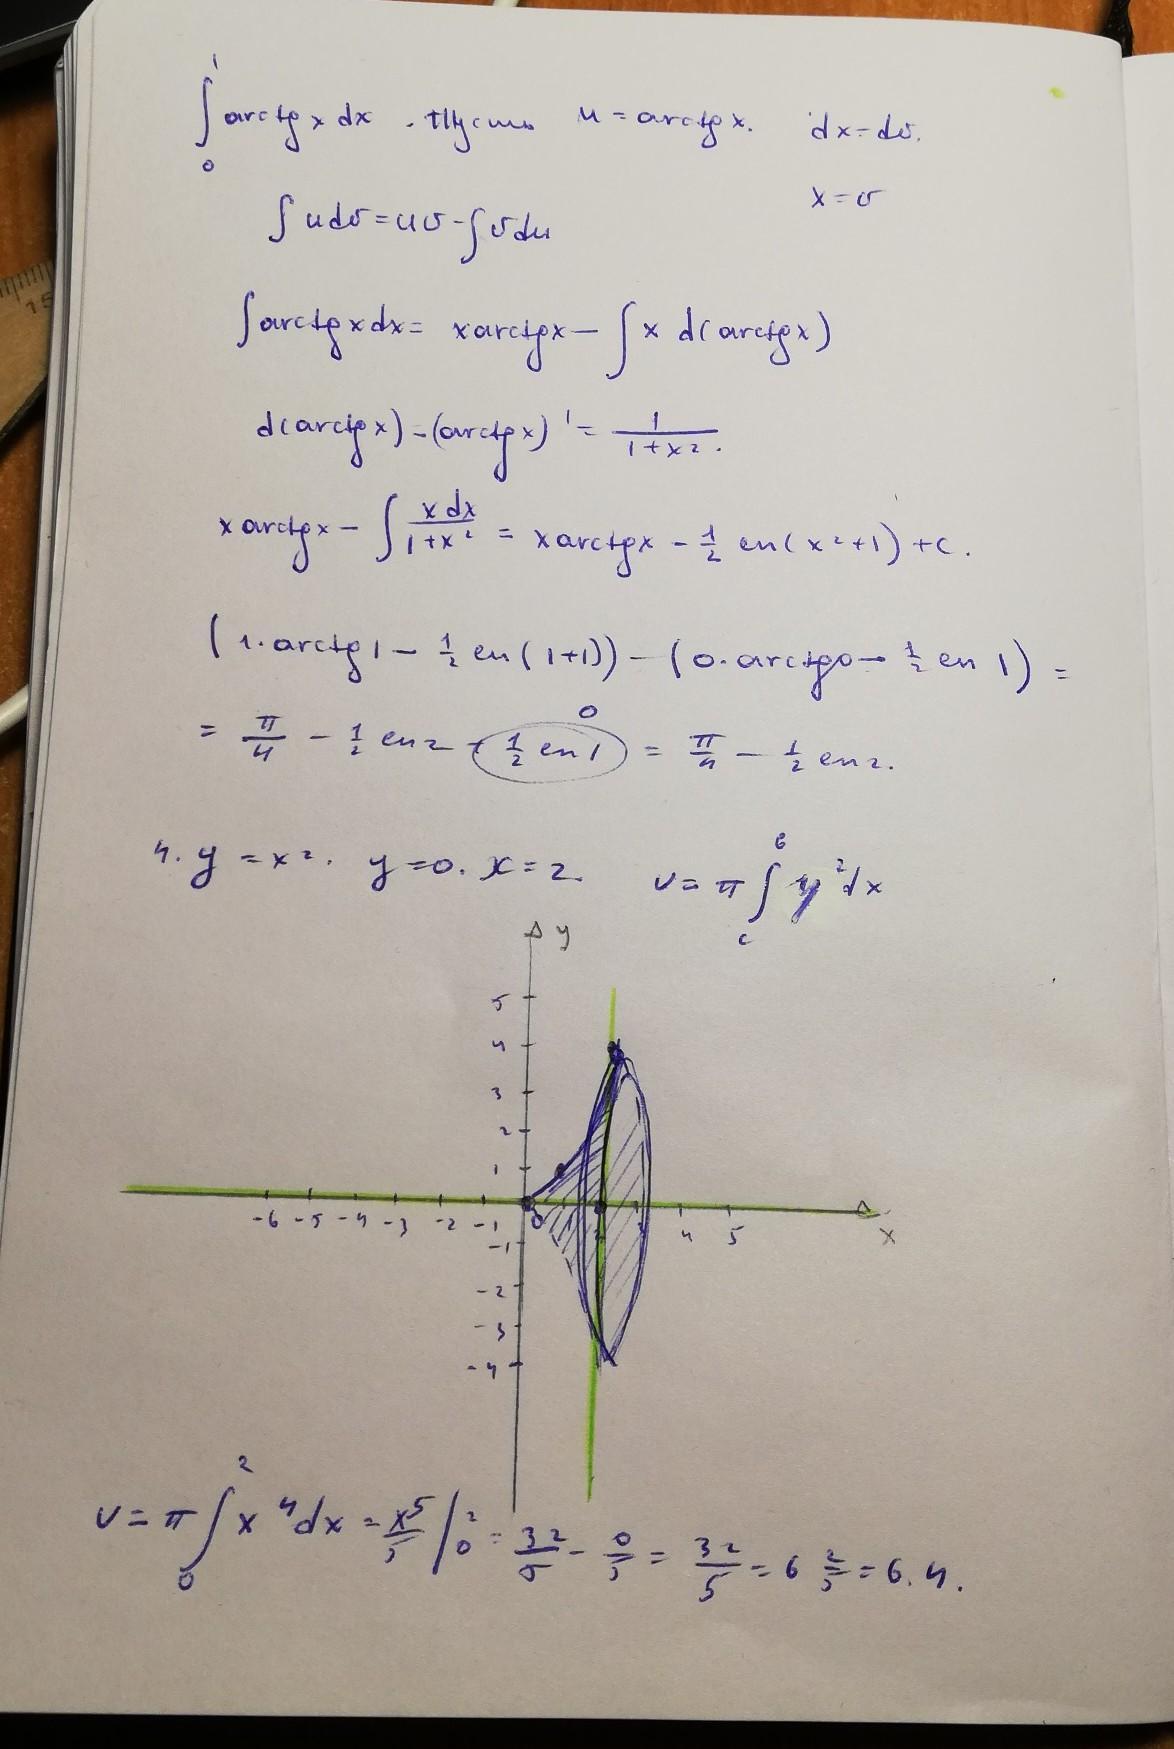 ∫₀¹ arctg x dx . Пусть u = arctg x. dx = dv.
x = v
∫ u dv = uv - ∫ v du
∫ arctg x dx = x arctg x - ∫ x d(arctg x)
d(arctg x) = (arctg x)' = 1/(1+x²).
x arctg x - ∫ x dx/(1+x²) = x arctg x - 1/2 ln(x²+1) + c.
(1·arctg 1 - 1/2 ln(1+1)) - (0·arctg 0 - 1/2 ln 1) =
= π/4 - 1/2 ln 2 - 1/2 ln 1 = π/4 - 1/2 ln 2.
0
4. y = x². y = 0. x = 2. v = π ∫ y² dx
в
c
y
5
4
3
2
1
-6 -5 -4 -3 -2 -1 0 4 5 x
-1
-2
-3
-4
v = π ∫₀² x⁴ dx = x⁵/5 |₀² = 32/5 - 0/5 = 32/5 = 6 2/5 = 6.4.
15